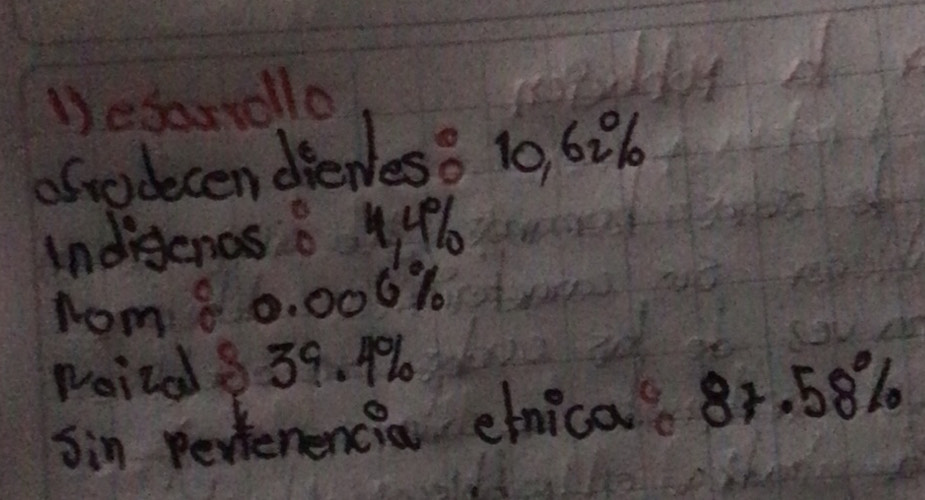 1) esarrollo
afrodecendientes: 10,62%
indigenas: 4,4%
rom: 0.006%
raizal: 39.4%
sin pertenencia etnica: 87.58%